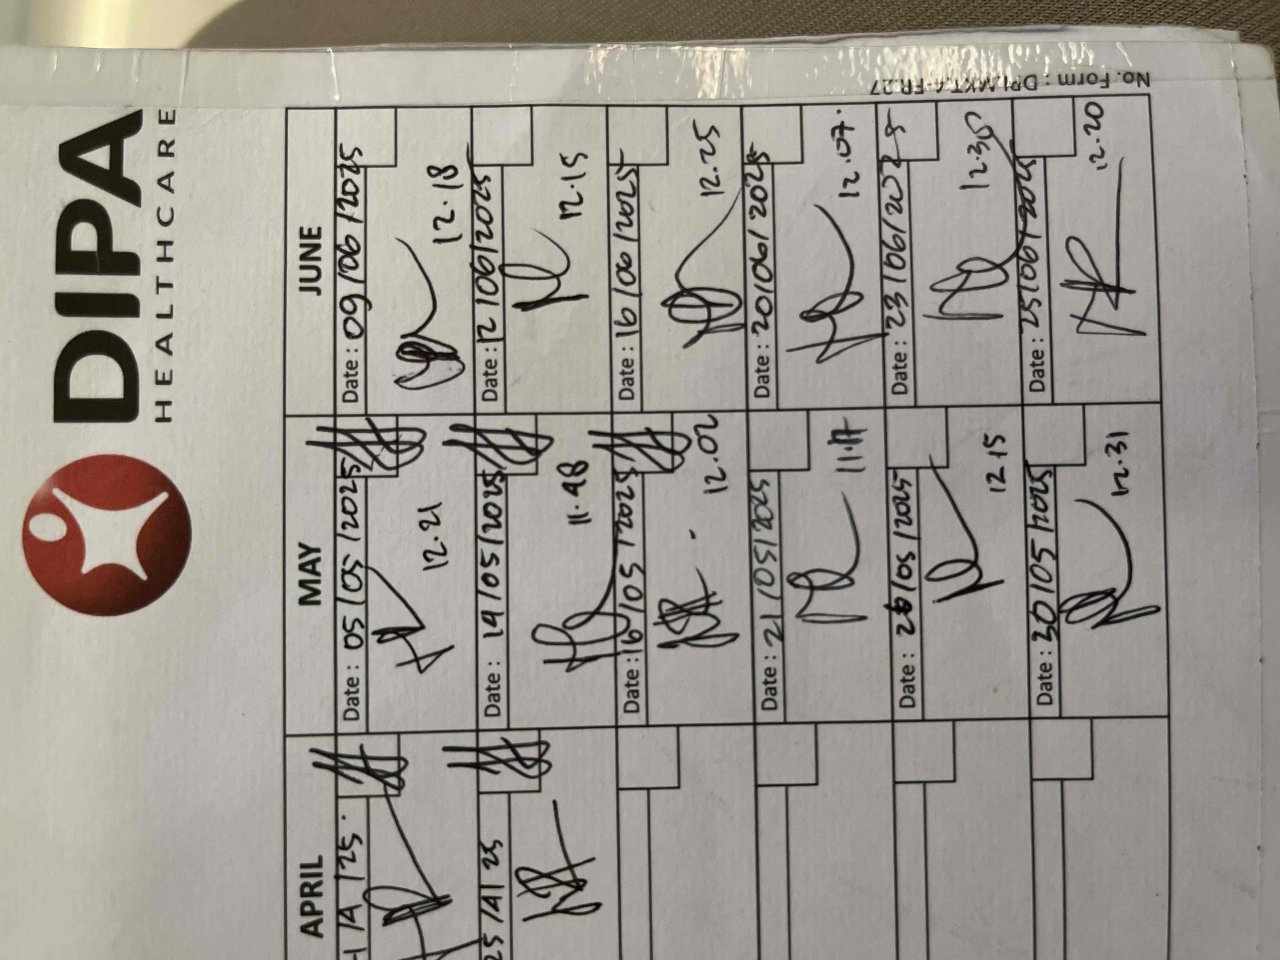 DIPA
HEALTHCARE
No. Form : DPI.MKT.4-FR.27
APRIL
MAY
JUNE
/4/25
Date : 05/05/2025
12.21
Date : 09/06/2025
12.18
25/4/25
Date : 19/05/2025
11.48
Date : 12/06/2025
12.15
Date : 16/05/2025
12.02
Date : 16/06/2025
12.25
Date : 21/05/2025
11.17
Date : 20/06/2025
12.07.
Date : 26/05/2025
12.15
Date : 23/06/2025
12.30
Date : 30/05/2025
12.31
Date : 25/06/2025
12.20